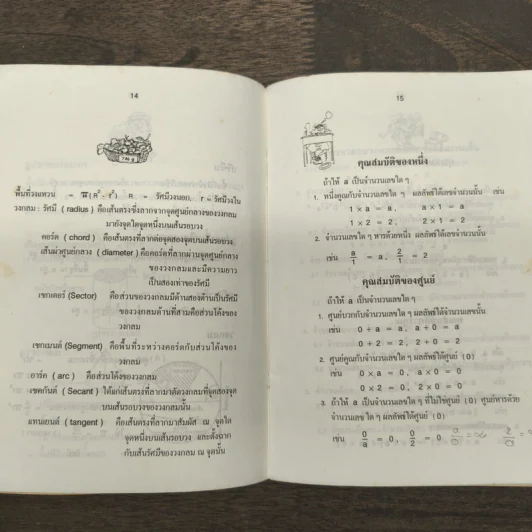 14
740 g
พื้นที่วงแหวน = π(R² - r²) R = รัศมีวงนอก, r = รัศมีวงใน
วงกลม : รัศมี ( radius ) คือเส้นตรงซึ่งลากจากจุดศูนย์กลางของวงกลม
มายังจุดใดจุดหนึ่งบนเส้นรอบวง
คอร์ด ( chord ) คือเส้นตรงที่ลากต่อจุดสองจุดบนเส้นรอบวง
เส้นผ่าศูนย์กลาง ( diameter ) คือคอร์ดที่ลากผ่านจุดศูนย์กลาง
ของวงกลมและมีความยาว
เป็นสองเท่าของรัศมี
เซกเตอร์ (Sector) คือส่วนของวงกลมมีด้านสองด้านเป็นรัศมี
ของวงกลมด้านที่สามคือส่วนโค้งของ
วงกลม
เซกเมนต์ (Segment) คือพื้นที่ระหว่างคอร์ดกับส่วนโค้งของ
วงกลม
อาร์ค ( arc ) คือส่วนโค้งของวงกลม
เซคกันต์ ( Secant ) ได้แก่เส้นตรงที่ลากมาตัดวงกลมที่สองจุด
บนเส้นรอบวงของวงกลมนั้น
แทนเยนต์ ( tangent ) คือเส้นตรงที่ลากมาสัมผัส ณ จุดใด
จุดหนึ่งบนเส้นรอบวง และตั้งฉาก
กับเส้นรัศมีของวงกลม ณ จุดนั้น
15
คุณสมบัติของหนึ่ง
ถ้าให้ a เป็นจำนวนเลขใด ๆ
1. หนึ่งคูณกับจำนวนเลขใด ๆ ผลลัพธ์ได้เลขจำนวนนั้น เช่น
1 × a = a, a × 1 = a
1 × 2 = 2, 2 × 1 = 2
2. จำนวนเลขใด ๆ หารด้วยหนึ่ง ผลลัพธ์ได้เลขจำนวนนั้น
เช่น a/1 = a, 2/1 = 2
คุณสมบัติของศูนย์
ถ้าให้ a เป็นจำนวนเลขใด ๆ
1. ศูนย์บวกกับจำนวนเลขใด ๆ ผลลัพธ์ได้เลขจำนวนนั้น
เช่น 0 + a = a, a + 0 = a
0 + 2 = 2, 2 + 0 = 2
2. ศูนย์คูณกับจำนวนเลขใด ๆ ผลลัพธ์ได้ศูนย์ (0)
เช่น 0 × a = 0, a × 0 = 0
0 × 2 = 0, 2 × 0 = 0
3. ถ้าให้ a เป็นจำนวนเลขใด ๆ ที่ไม่ใช่ศูนย์ (0) ศูนย์หารด้วย
จำนวนเลขใด ๆ ผลลัพธ์ได้ศูนย์ (0)
เช่น 0/a = 0, 0/2 = 0 a/0 = ∝ 2/0 =